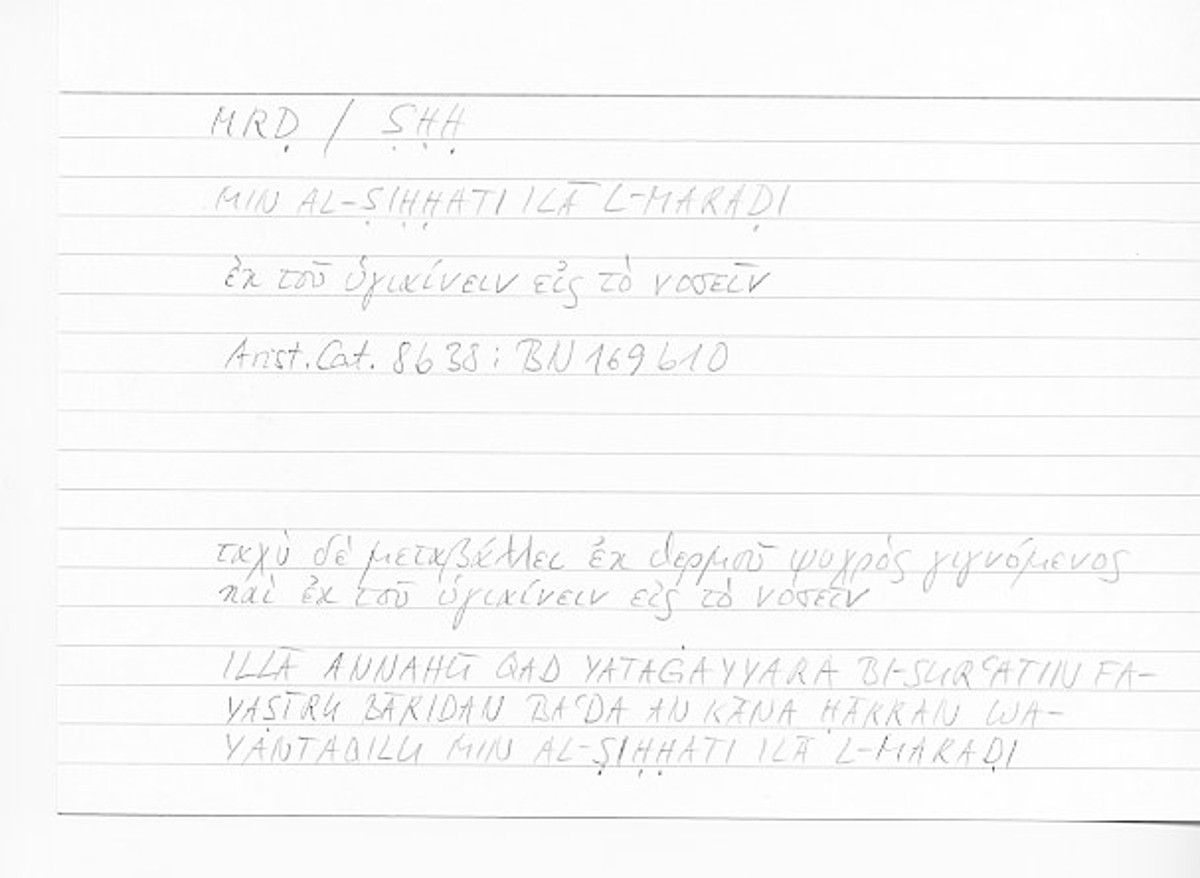 MRḌ / ṢḤḤ
MIN AL-ṢIḤḤATI ILĀ L-MARAḌI
ἐκ τοῦ ὑγιαίνειν εἰς τὸ νοσεῖν
Arist. Cat. 8b38; BN 169b10
ταχὺ δὲ μεταβάλλει ἐκ θερμοῦ ψυχρὸς γιγνόμενος
καὶ ἐκ τοῦ ὑγιαίνειν εἰς τὸ νοσεῖν
ILLĀ ANNAHŪ QAD YATAĠAYYARA BI-SURʿATIN FA-
YAṢĪRU BĀRIDAN BAʿDA AN KĀNA ḤĀRRAN WA-
YANTAQILU MIN AL-ṢIḤḤATI ILĀ L-MARAḌI